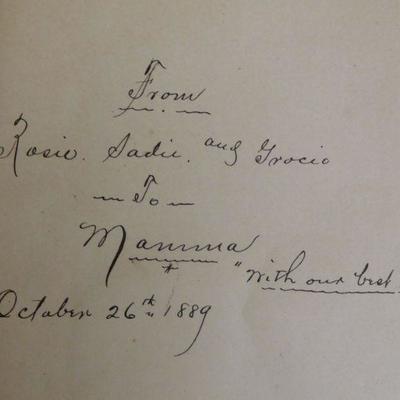 From
Rosie. Sadie. and Grocio
— To —
Mamma
"With our best
October 26th 1889